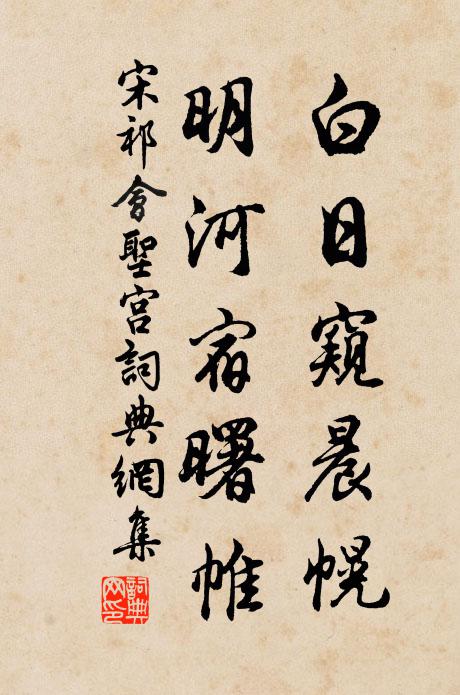 白日窺晨幌
明河宿曙帷
宋祁會聖宮詞典網集
詞典网印